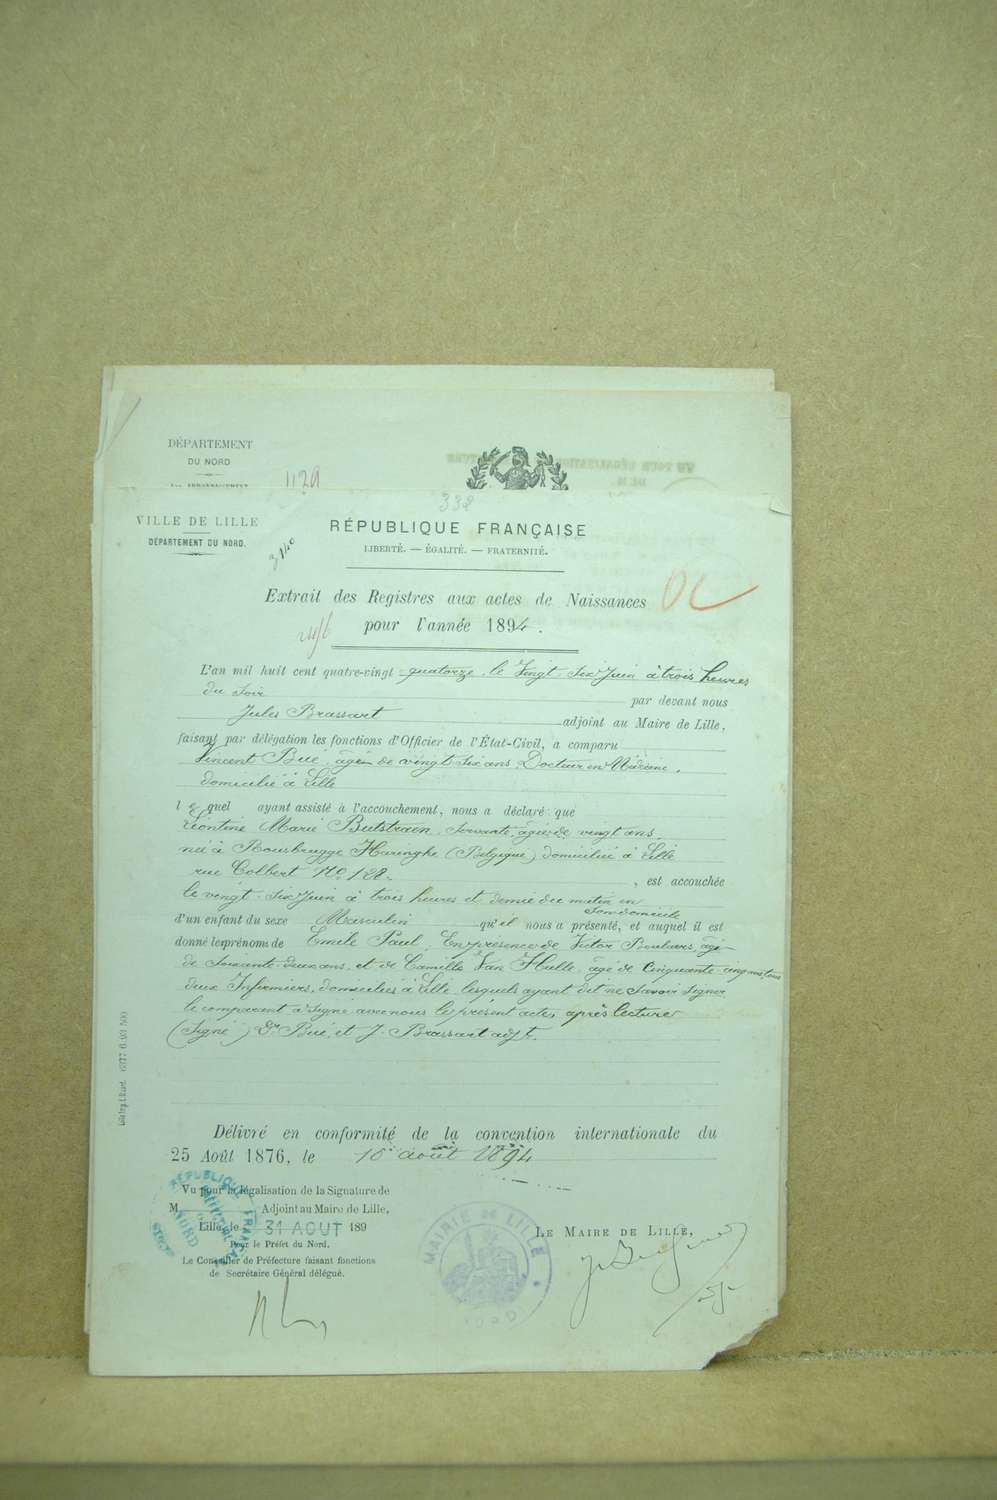 DÉPARTEMENT
DU NORD
1129
338
VILLE DE LILLE
DÉPARTEMENT DU NORD.
3140
RÉPUBLIQUE FRANÇAISE
LIBERTÉ. — ÉGALITÉ. — FRATERNITÉ.
Extrait des Registres aux actes de Naissances
pour l'année 1894.
L'an mil huit cent quatre-vingt quatorze, le Vingt-six Juin à trois heures
du soir par devant nous
Jules Brassart adjoint au Maire de Lille,
faisant par délégation les fonctions d'Officier de l'État-Civil, a comparu
Vincent Bué, âgé de vingt six ans, Docteur en Médecine,
domicilié à Lille
lequel ayant assisté à l'accouchement, nous a déclaré que
Léontine Marie Butstraen, servante, âgée de vingt ans,
née à Rousbrugge Haringhe (Belgique) domiciliée à Lille
rue Colbert No. 128. , est accouchée
le vingt-six Juin à trois heures et demie du matin en
son domicile
d'un enfant du sexe Masculin qu'il nous a présenté, et auquel il est
donné les prénoms de Emile Paul, En présence de Victor Boulvars, âgé
de soixante-deux ans, et de Camille Van Hulle, âgé de cinquante-cinq ans, tous
deux Infirmiers, domiciliés à Lille, lesquels ayant dit ne savoir signer
le comparant a signé avec nous le présent acte, après lecture
(Signé) Dr Bué, et J. Brassart adjt.
Délivré en conformité de la convention internationale du
25 Août 1876, le 10 août 1894
Vu pour la légalisation de la Signature de
M Adjoint au Maire de Lille,
Lille, le 31 AOUT 189
Pour le Préfet du Nord.
Le Conseiller de Préfecture faisant fonctions
de Secrétaire Général délégué.
LE MAIRE DE LILLE,
MAIRIE DE LILLE
NORD
RÉPUBLIQUE FRANÇAISE
NORD